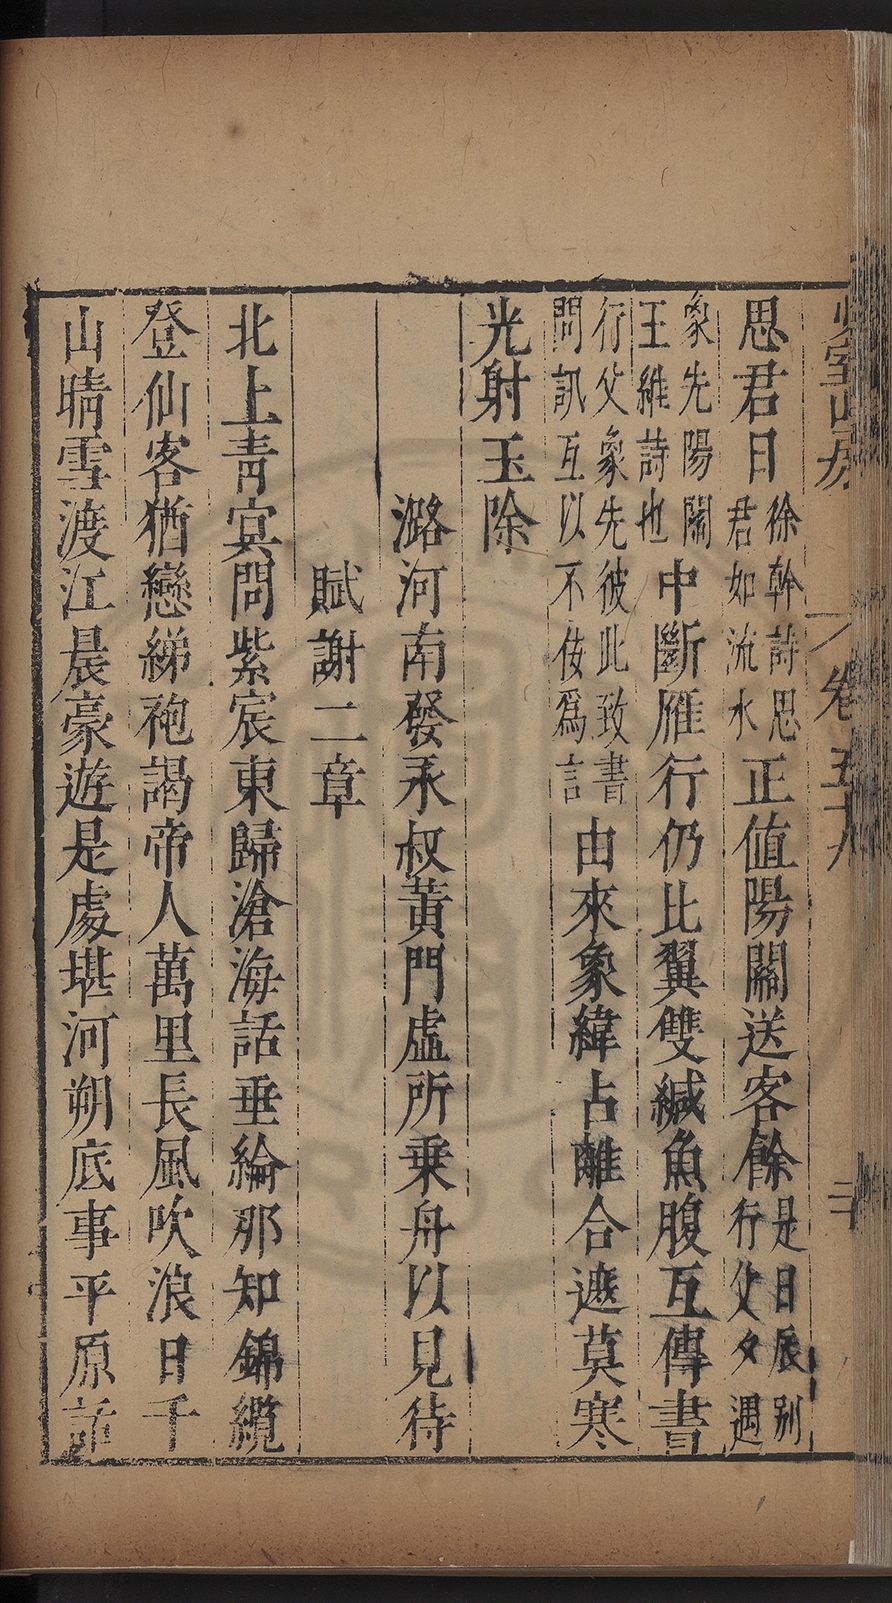 思君日徐幹詩思君如流水正值陽關送客餘是日辰别行父夕遇
象先陽關王維詩也中斷雁行仍比翼雙緘魚腹互傳書
行父象先彼此致書問訊互以不佞爲言由來象緯占離合遮莫寒
光射玉除
潞河南發承叔黄門虛所乗舟以見待
賦謝二章
北上青㝠問紫宸東歸滄海話垂綸那知錦纜
登仙客猶戀綈袍謁帝人萬里長風吹浪日千
山晴雪渡江晨豪遊是處堪河朔底事平原
卷五十八
二